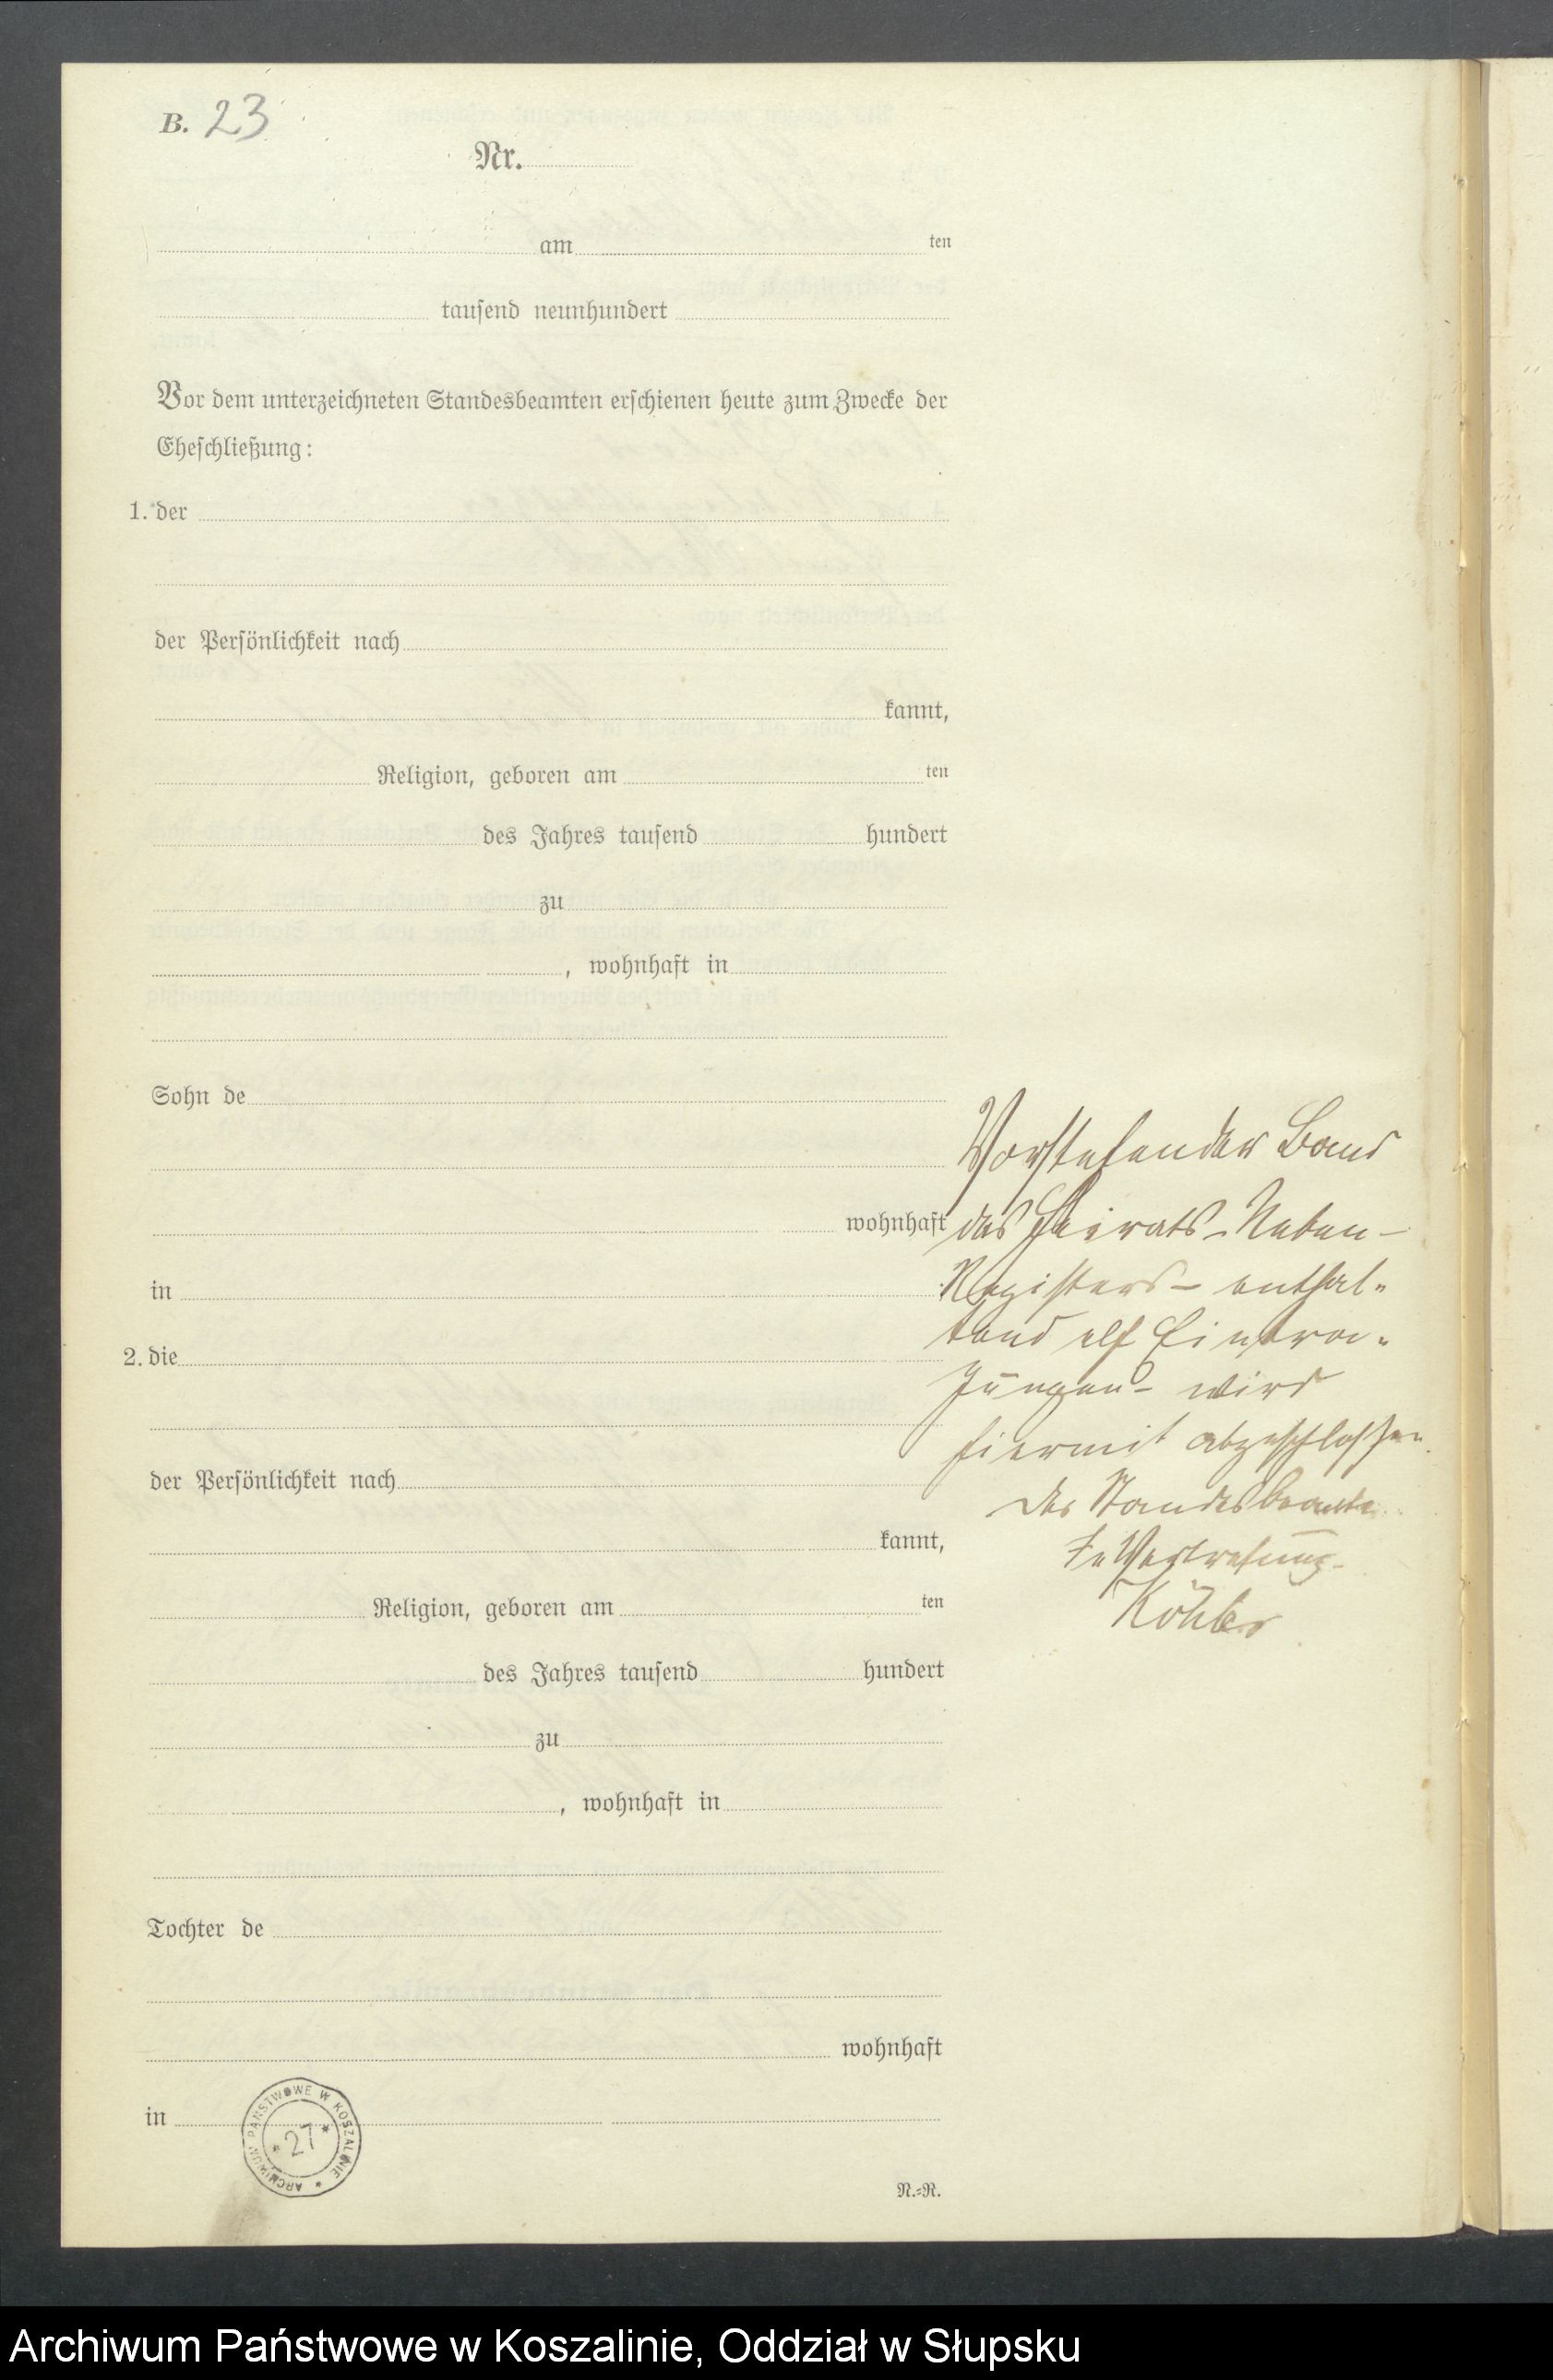 B. 23
Nr.
am ten
tausend neunhundert
Vor dem unterzeichneten Standesbeamten erschienen heute zum Zwecke der
Eheschließung:
1. der
der Persönlichkeit nach
kannt,
Religion, geboren am ten
des Jahres tausend hundert
zu
, wohnhaft in
Sohn de
wohnhaft
in
2. die
der Persönlichkeit nach
kannt,
Religion, geboren am ten
des Jahres tausend hundert
zu
, wohnhaft in
Tochter de
wohnhaft
in
N.=R.
Vorstehender Band
des Heirats-Neben-
Registers - enthal-
tend elf Eintra-
gungen - wird
hiermit abgeschlossen.
Der Standesbeamte
In Vertretung
Köhler
ARCHIWUM PAŃSTWOWE W KOSZALINIE
* 27 *
Archiwum Państwowe w Koszalinie, Oddział w Słupsku